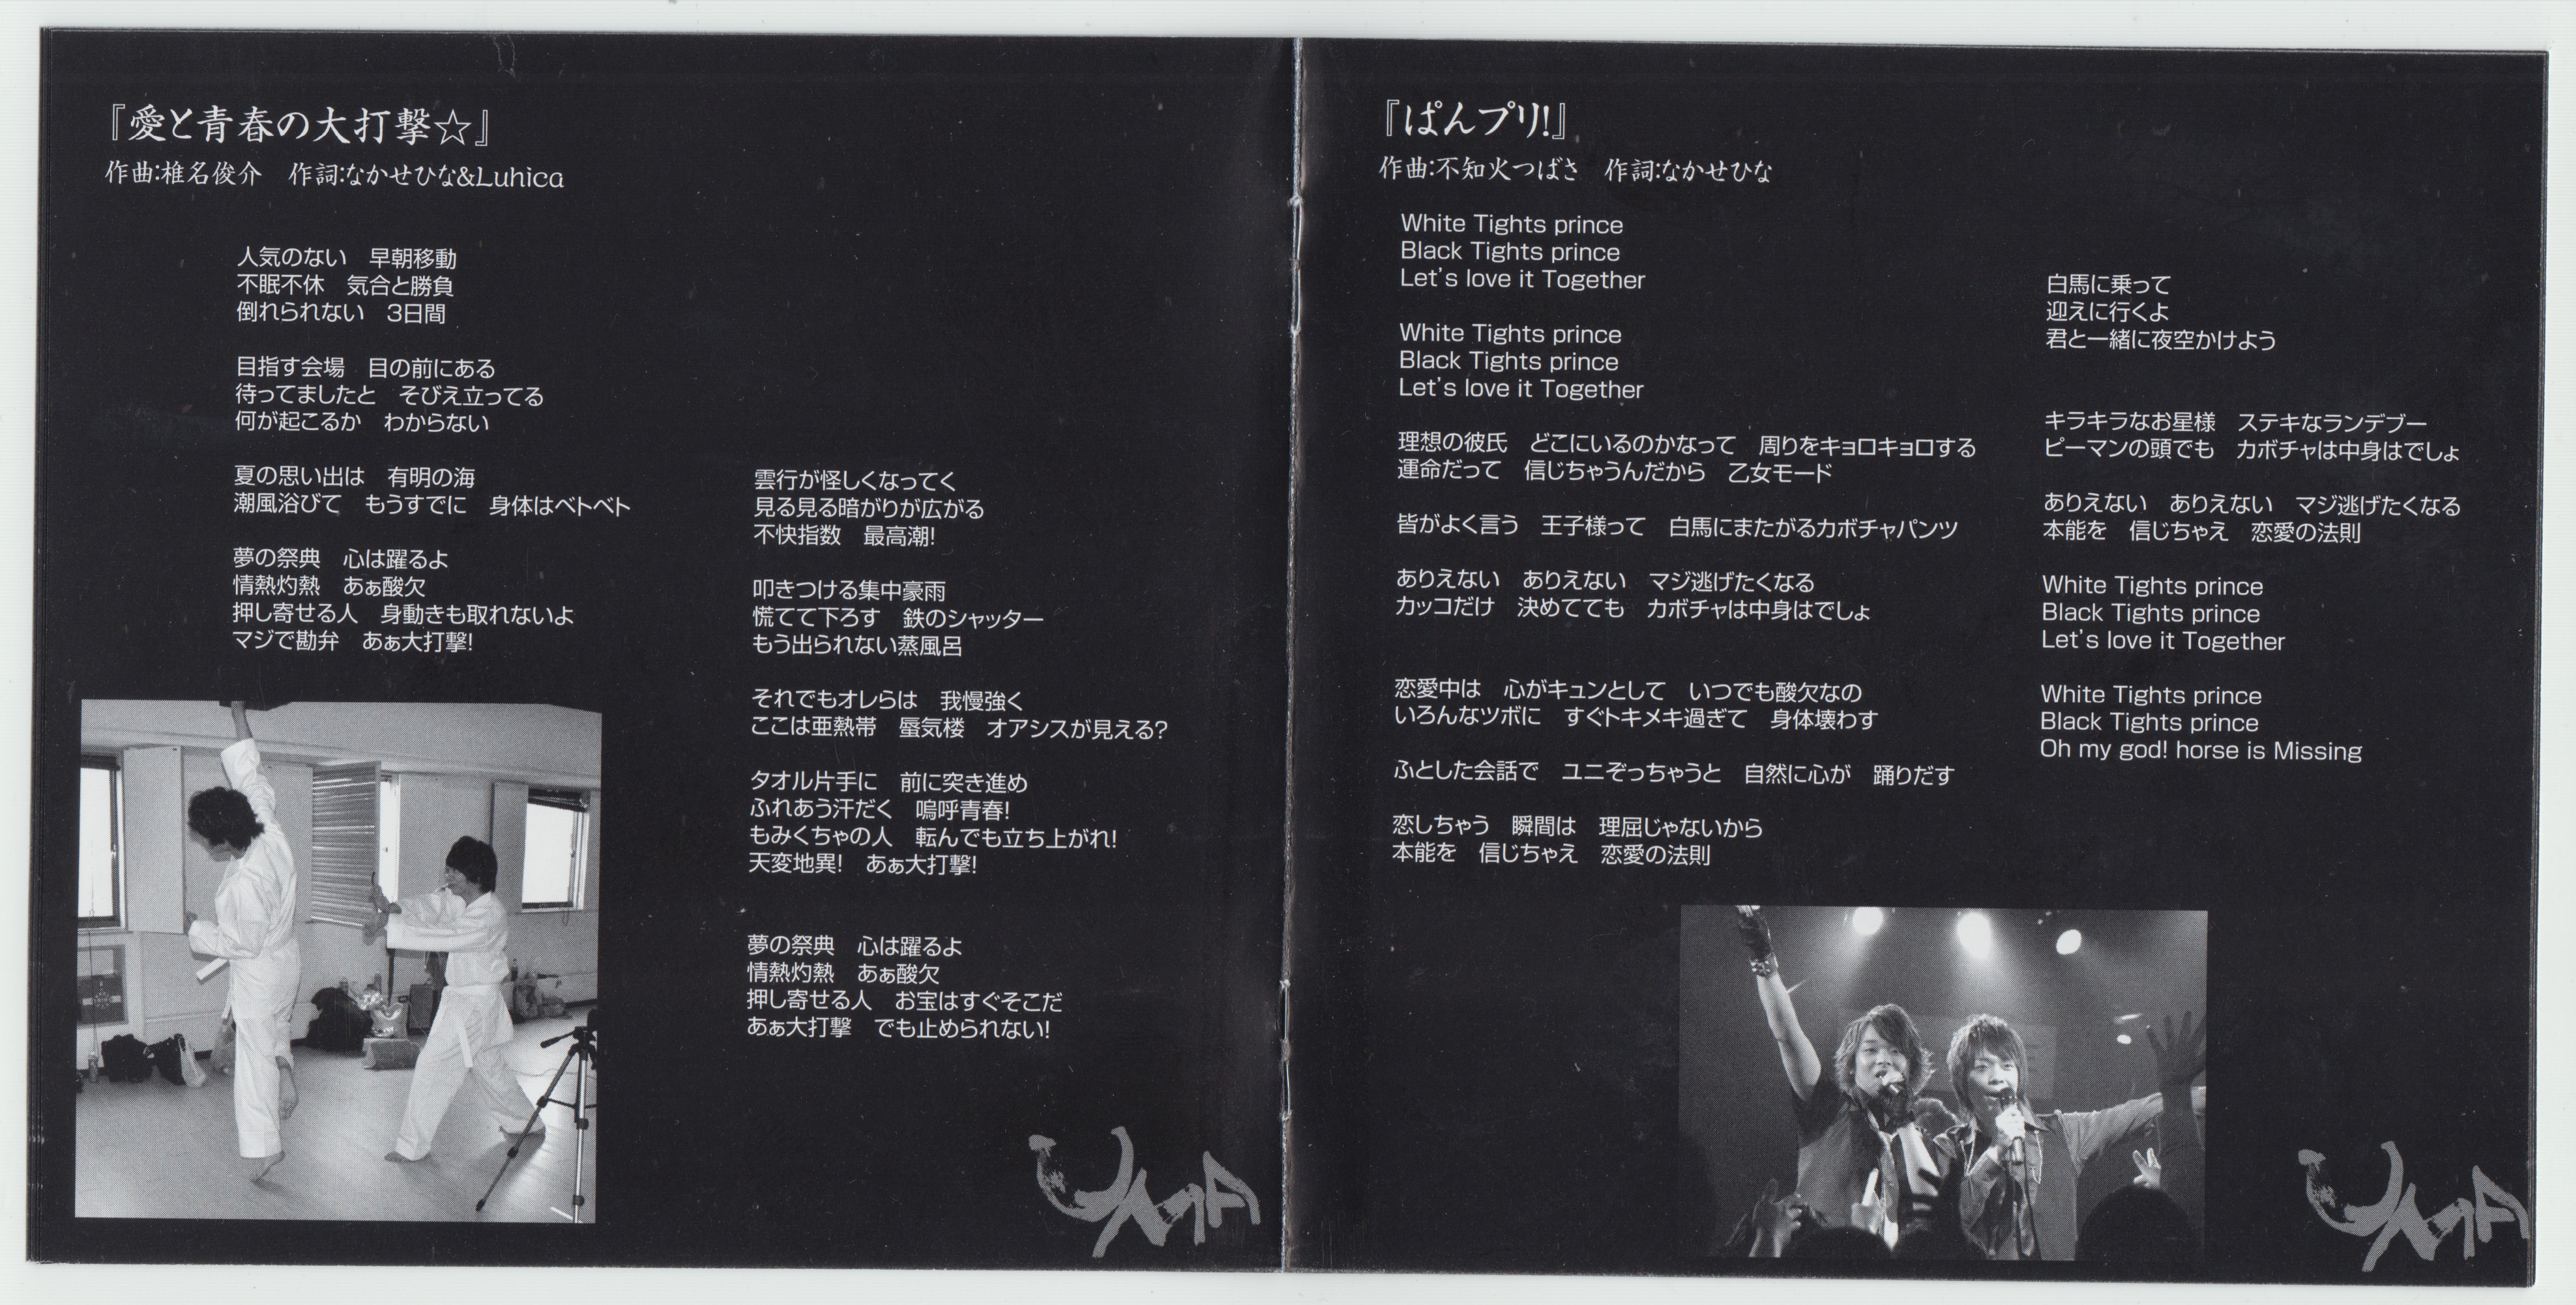 『愛と青春の大打撃☆』
作曲:椎名俊介　作詞:なかせひな&Luhica
人気のない　早朝移動
不眠不休　気合と勝負
倒れられない　3日間
目指す会場　目の前にある
待ってましたと　そびえ立ってる
何が起こるか　わからない
夏の思い出は　有明の海
潮風浴びて　もうすでに　身体はベトベト
夢の祭典　心は躍るよ
情熱灼熱　あぁ酸欠
押し寄せる人　身動きも取れないよ
マジで勘弁　あぁ大打撃!
雲行が怪しくなってく
見る見る暗がりが広がる
不快指数　最高潮!
叩きつける集中豪雨
慌てて下ろす　鉄のシャッター
もう出られない蒸風呂
それでもオレらは　我慢強く
ここは亜熱帯　蜃気楼　オアシスが見える?
タオル片手に　前に突き進め
ふれあう汗だく　嗚呼青春!
もみくちゃの人　転んでも立ち上がれ!
天変地異!　あぁ大打撃!
夢の祭典　心は躍るよ
情熱灼熱　あぁ酸欠
押し寄せる人　お宝はすぐそこだ
あぁ大打撃　でも止められない!
『ぱんプリ!』
作曲:不知火つばさ　作詞:なかせひな
White Tights prince
Black Tights prince
Let's love it Together
White Tights prince
Black Tights prince
Let's love it Together
理想の彼氏　どこにいるのかなって　周りをキョロキョロする
運命だって　信じちゃうんだから　乙女モード
皆がよく言う　王子様って　白馬にまたがるカボチャパンツ
ありえない　ありえない　マジ逃げたくなる
カッコだけ　決めてても　カボチャは中身はでしょ
恋愛中は　心がキュンとして　いつでも酸欠なの
いろんなツボに　すぐトキメキ過ぎて　身体壊わす
ふとした会話で　ユニぞっちゃうと　自然に心が　踊りだす
恋しちゃう　瞬間は　理屈じゃないから
本能を　信じちゃえ　恋愛の法則
白馬に乗って
迎えに行くよ
君と一緒に夜空かけよう
キラキラなお星様　ステキなランデブー
ピーマンの頭でも　カボチャは中身はでしょ
ありえない　ありえない　マジ逃げたくなる
本能を　信じちゃえ　恋愛の法則
White Tights prince
Black Tights prince
Let's love it Together
White Tights prince
Black Tights prince
Oh my god! horse is Missing